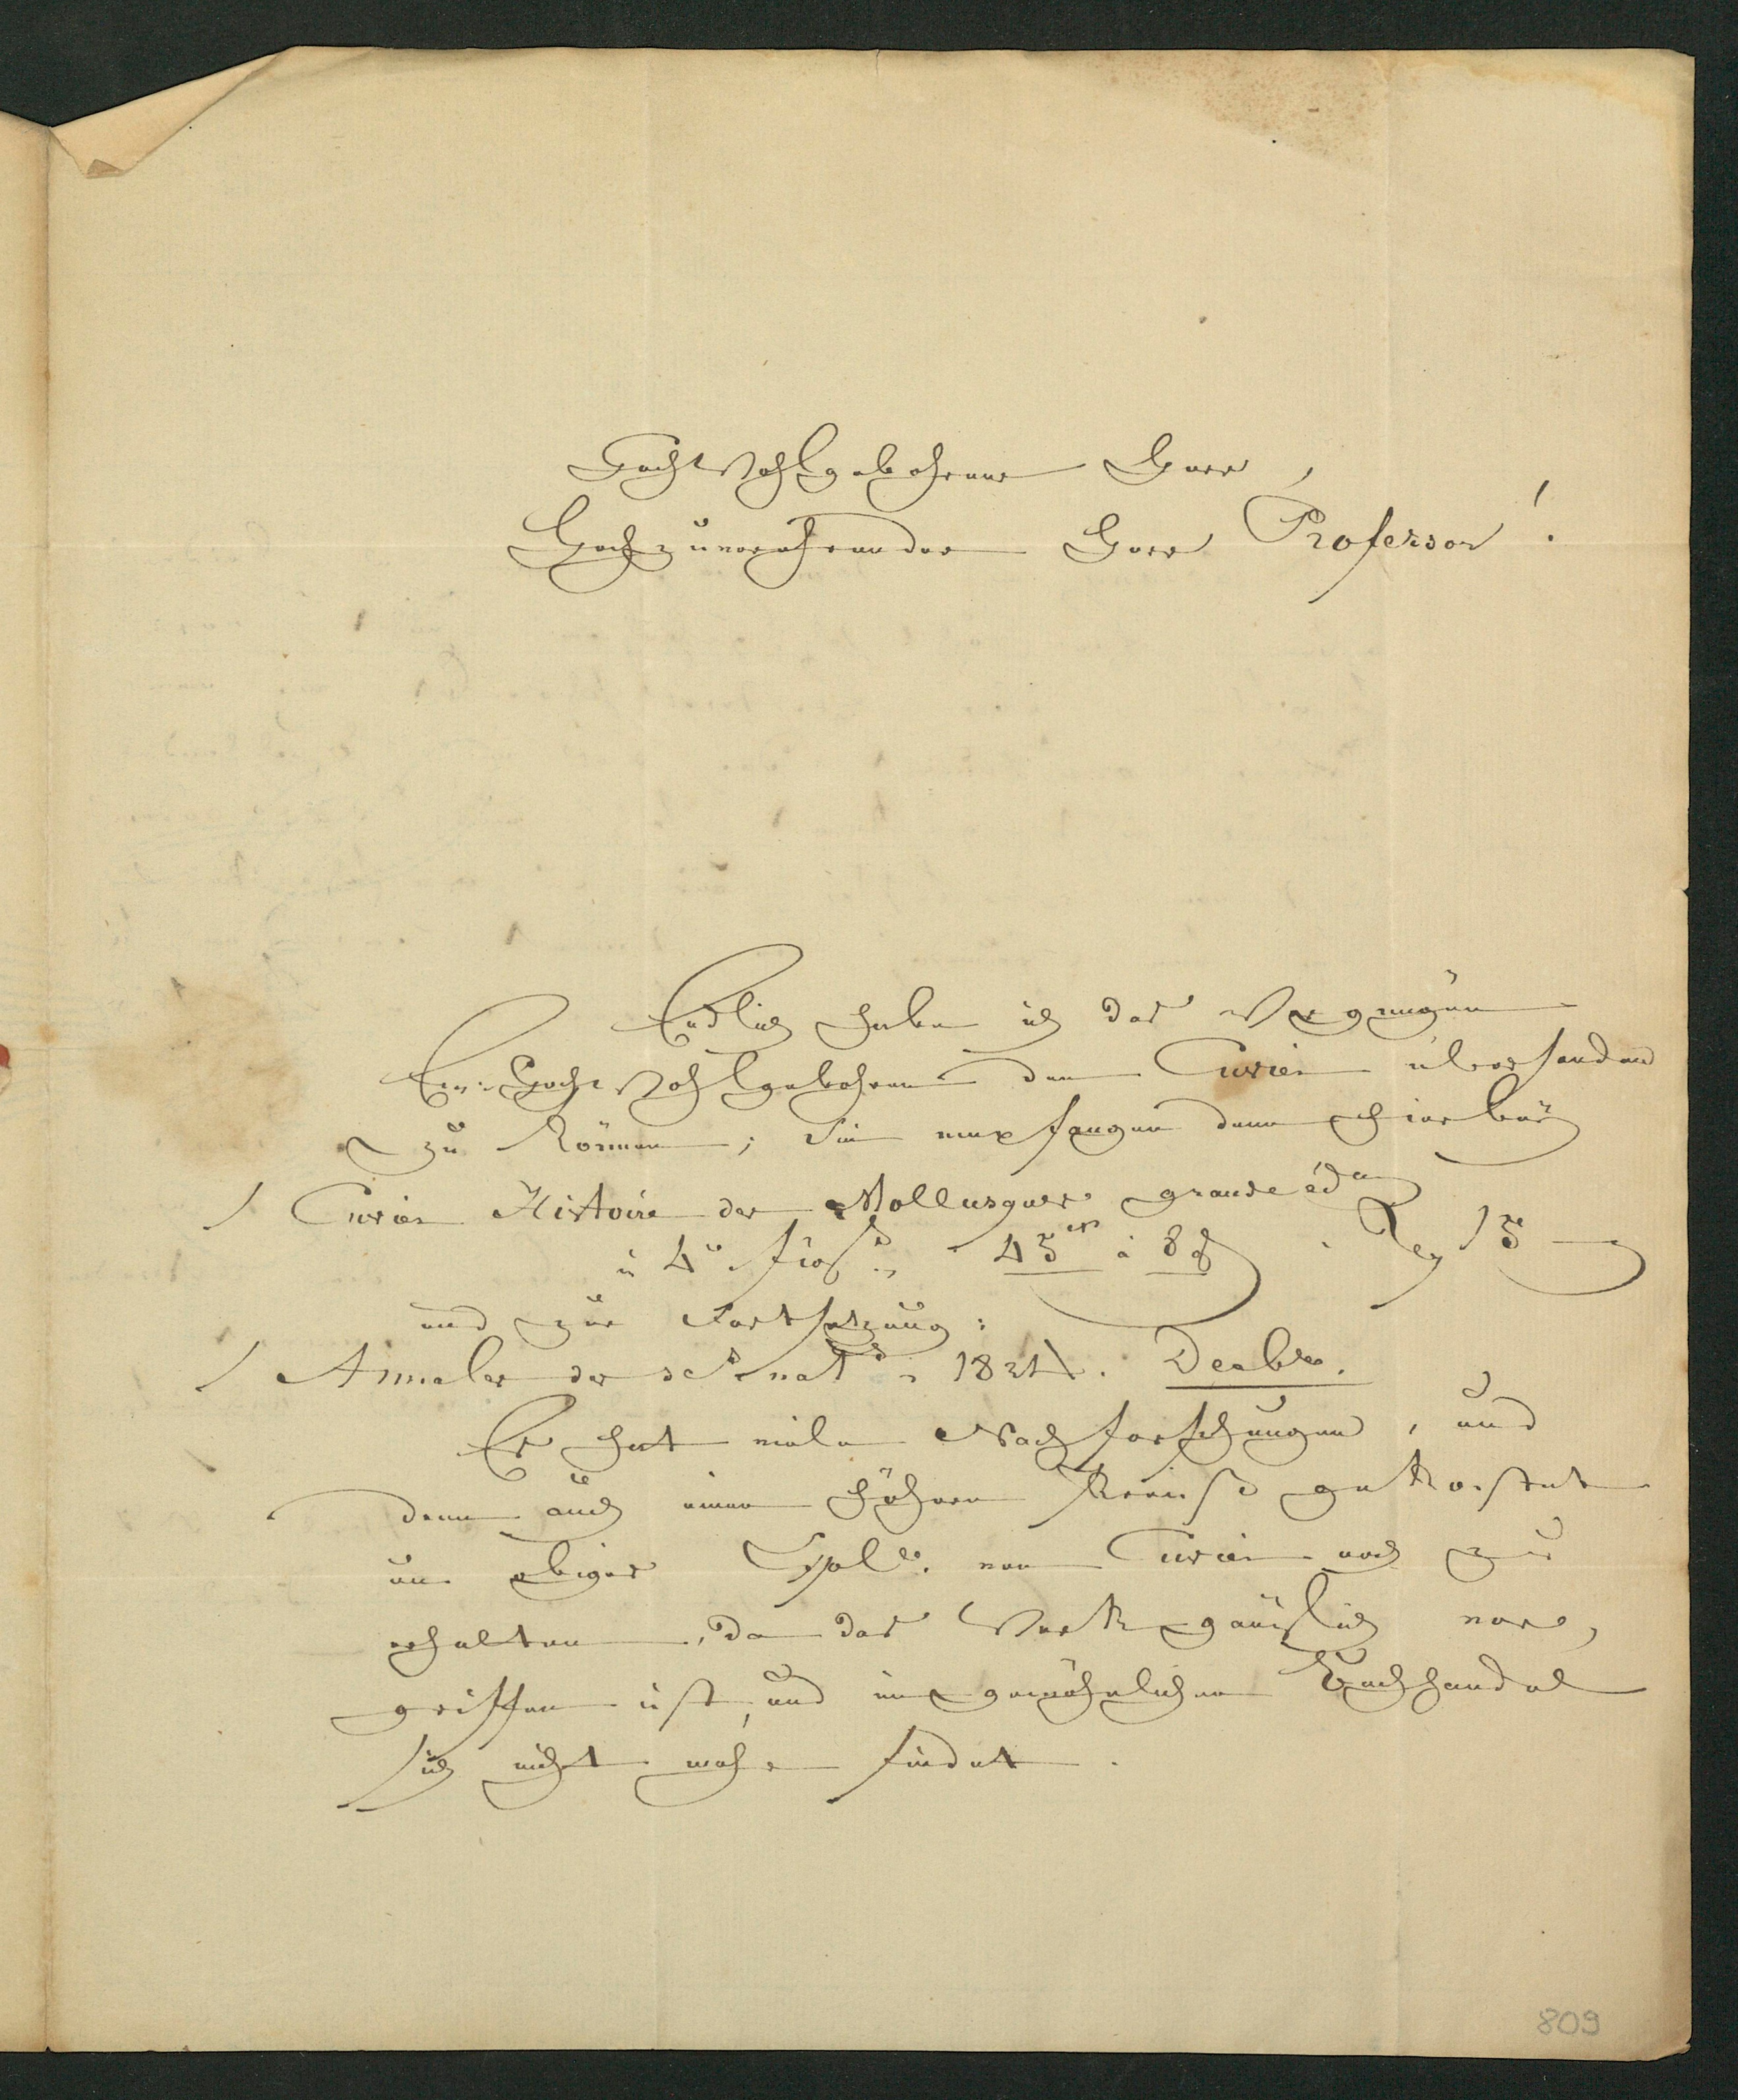 Hochwohlgebohrner Herr,
Hochzuverehrender Herr Professor!
Endlich habe ich das Vergnügen
Ew: Hochwohlgebohren den Cuvier übersenden
zu können; Sie empfangen denn hierbey
1 Cuvier Histoire des Mollusques grande édn
in 4°. 45 à 8 15
und zur Fortsetzung:
1 Annales des sc. nat. 1824. Decbre.
Es hat viele Nachforschungen, und
denn auch einen höhern Preiß gekostet
um obiges Expl. von Cuvier noch zu
erhalten, da das Werk gänzlich ver,
griffen ist, und im gewöhnlichen Buchhandel
sich nicht mehr findet.
809